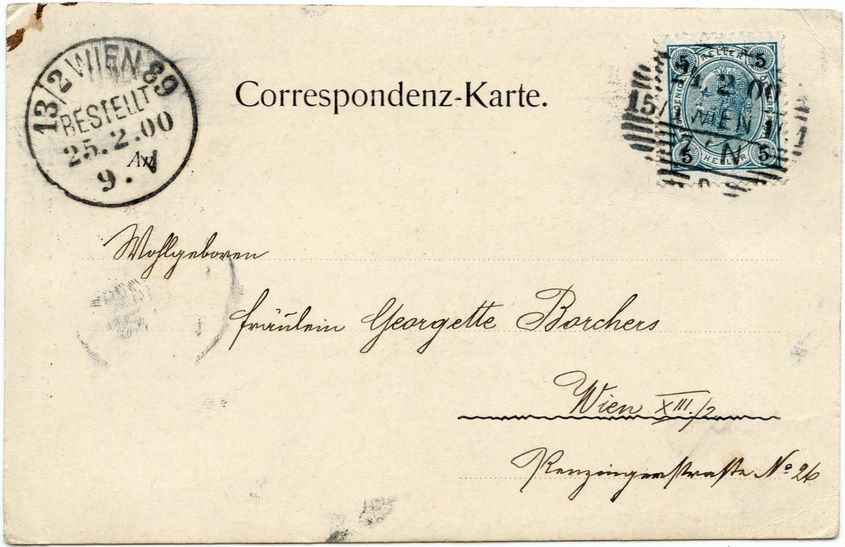 13/2 WIEN 89
BESTELLT
25.2.00
9.V
Correspondenz-Karte.
5 HELLER 5
2.00
15/1
WIEN
N
5 HELLER 5
Wohlgeboren
Fräulein Georgette Borchers
Wien XIII/2
Penzingerstraße No 26